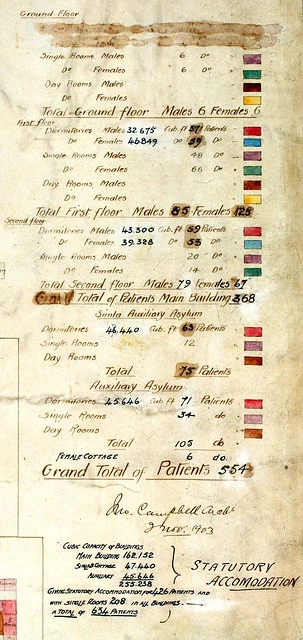 Ground Floor
Single Rooms Males 6 Do
Do Females 6 Do
Day Rooms Males
Do Females
Total Ground floor Males 6 Females 6
First Floor
Dormitories Males 32.675 Cub. ft 57 Patients
Do Females 46849 Do 59 Do
Single Rooms Males 28 Do
Do Females 66 Do
Day Rooms Males
Do Females
Total First floor Males 85 Females 125
Second floor
Dormitories Males 43.300 Cub. ft 59 Patients
Do Females 39.328 Do 53 Do
Single Rooms Males 20 Do
Do Females 14 Do
Total Second floor Males 79 females 67
Total of Patients Main Building 368
Auxiliary Asylum
Dormitories 46.440 Cub. ft 63 Patients
Single Rooms 12
Day Rooms
Total 75 Patients
Auxiliary Asylum
Dormitories 45.646 Cub ft 71 Patients
Single Rooms 34 do.
Day Rooms
Total 105 do
FEMALE COTTAGE 6 do.
Grand Total of Patients 554
Jno. Campbell Archt.
2 Nov. 1903
CUBIC CAPACITY OF BUILDINGS
MAIN BUILDING 162.152
COTTAGE 47.440
AUXILIARY 45.646
255.238
STATUTORY
ACCOMODATION
GIVING STATUTORY ACCOMMODATION FOR 426 PATIENTS AND
WITH SINGLE ROOMS 208 IN ALL BUILDINGS.
A TOTAL OF 634 PATIENTS